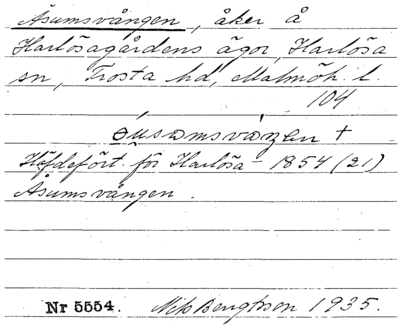 Åsumsvången, åker å
Harlösagårdens ägor, Harlösa
sn, Frosta hd, Malmöh. l.
104
óusamsvåŋan +
Höfdeført. för Harlösa - 1854 (21)
Åsumsvången.
Nr 5554. Nils Bengtsson 1935.